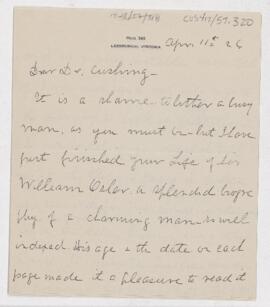 CUS417/57.320
LEESBURG, VIRGINIA
Apr. 11th 26
Dear Dr. Cushing -
It is a shame to bother a busy
man, as you must be - but I have
just finished your Life of Sir
William Osler, a splendid biogra
phy of a charming man - so well
indexed & his age & the date on each
page made it a pleasure to read it